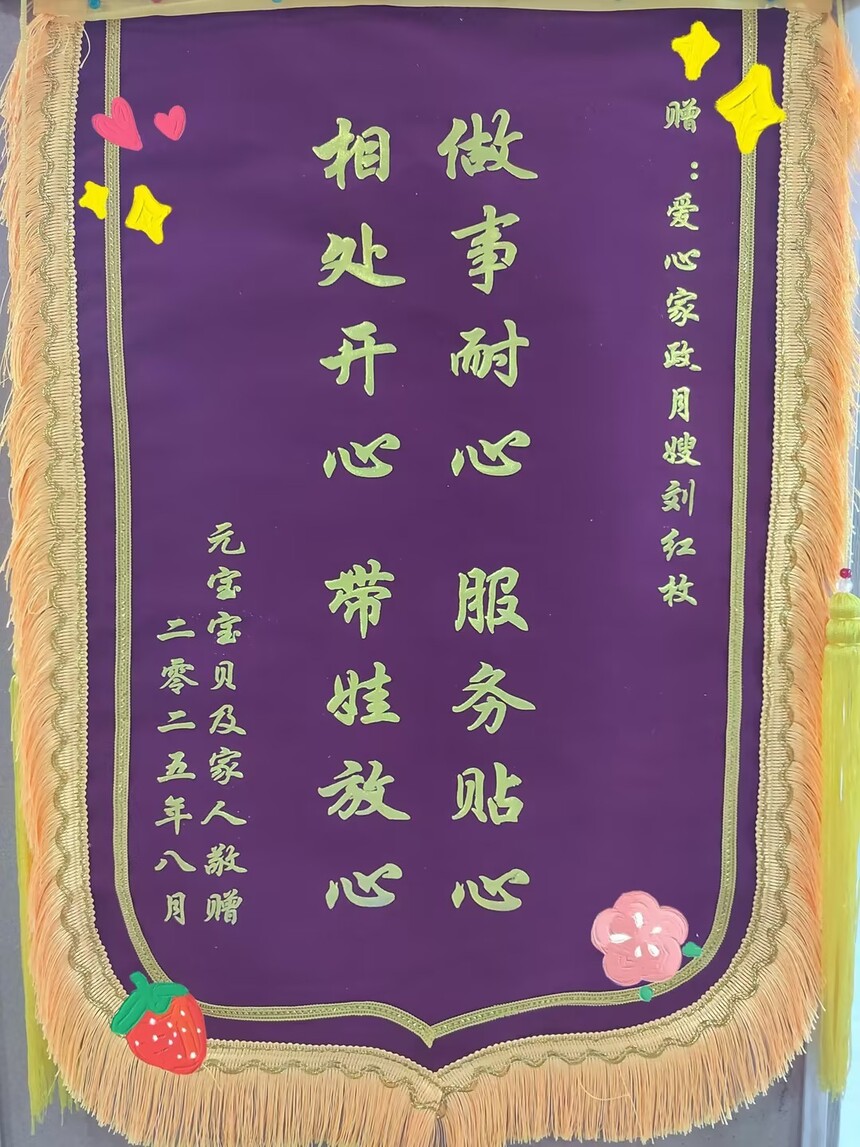 赠：爱心家政月嫂刘红枚
做事耐心 服务贴心
相处开心 带娃放心
元宝宝贝及家人敬赠
二零二五年八月